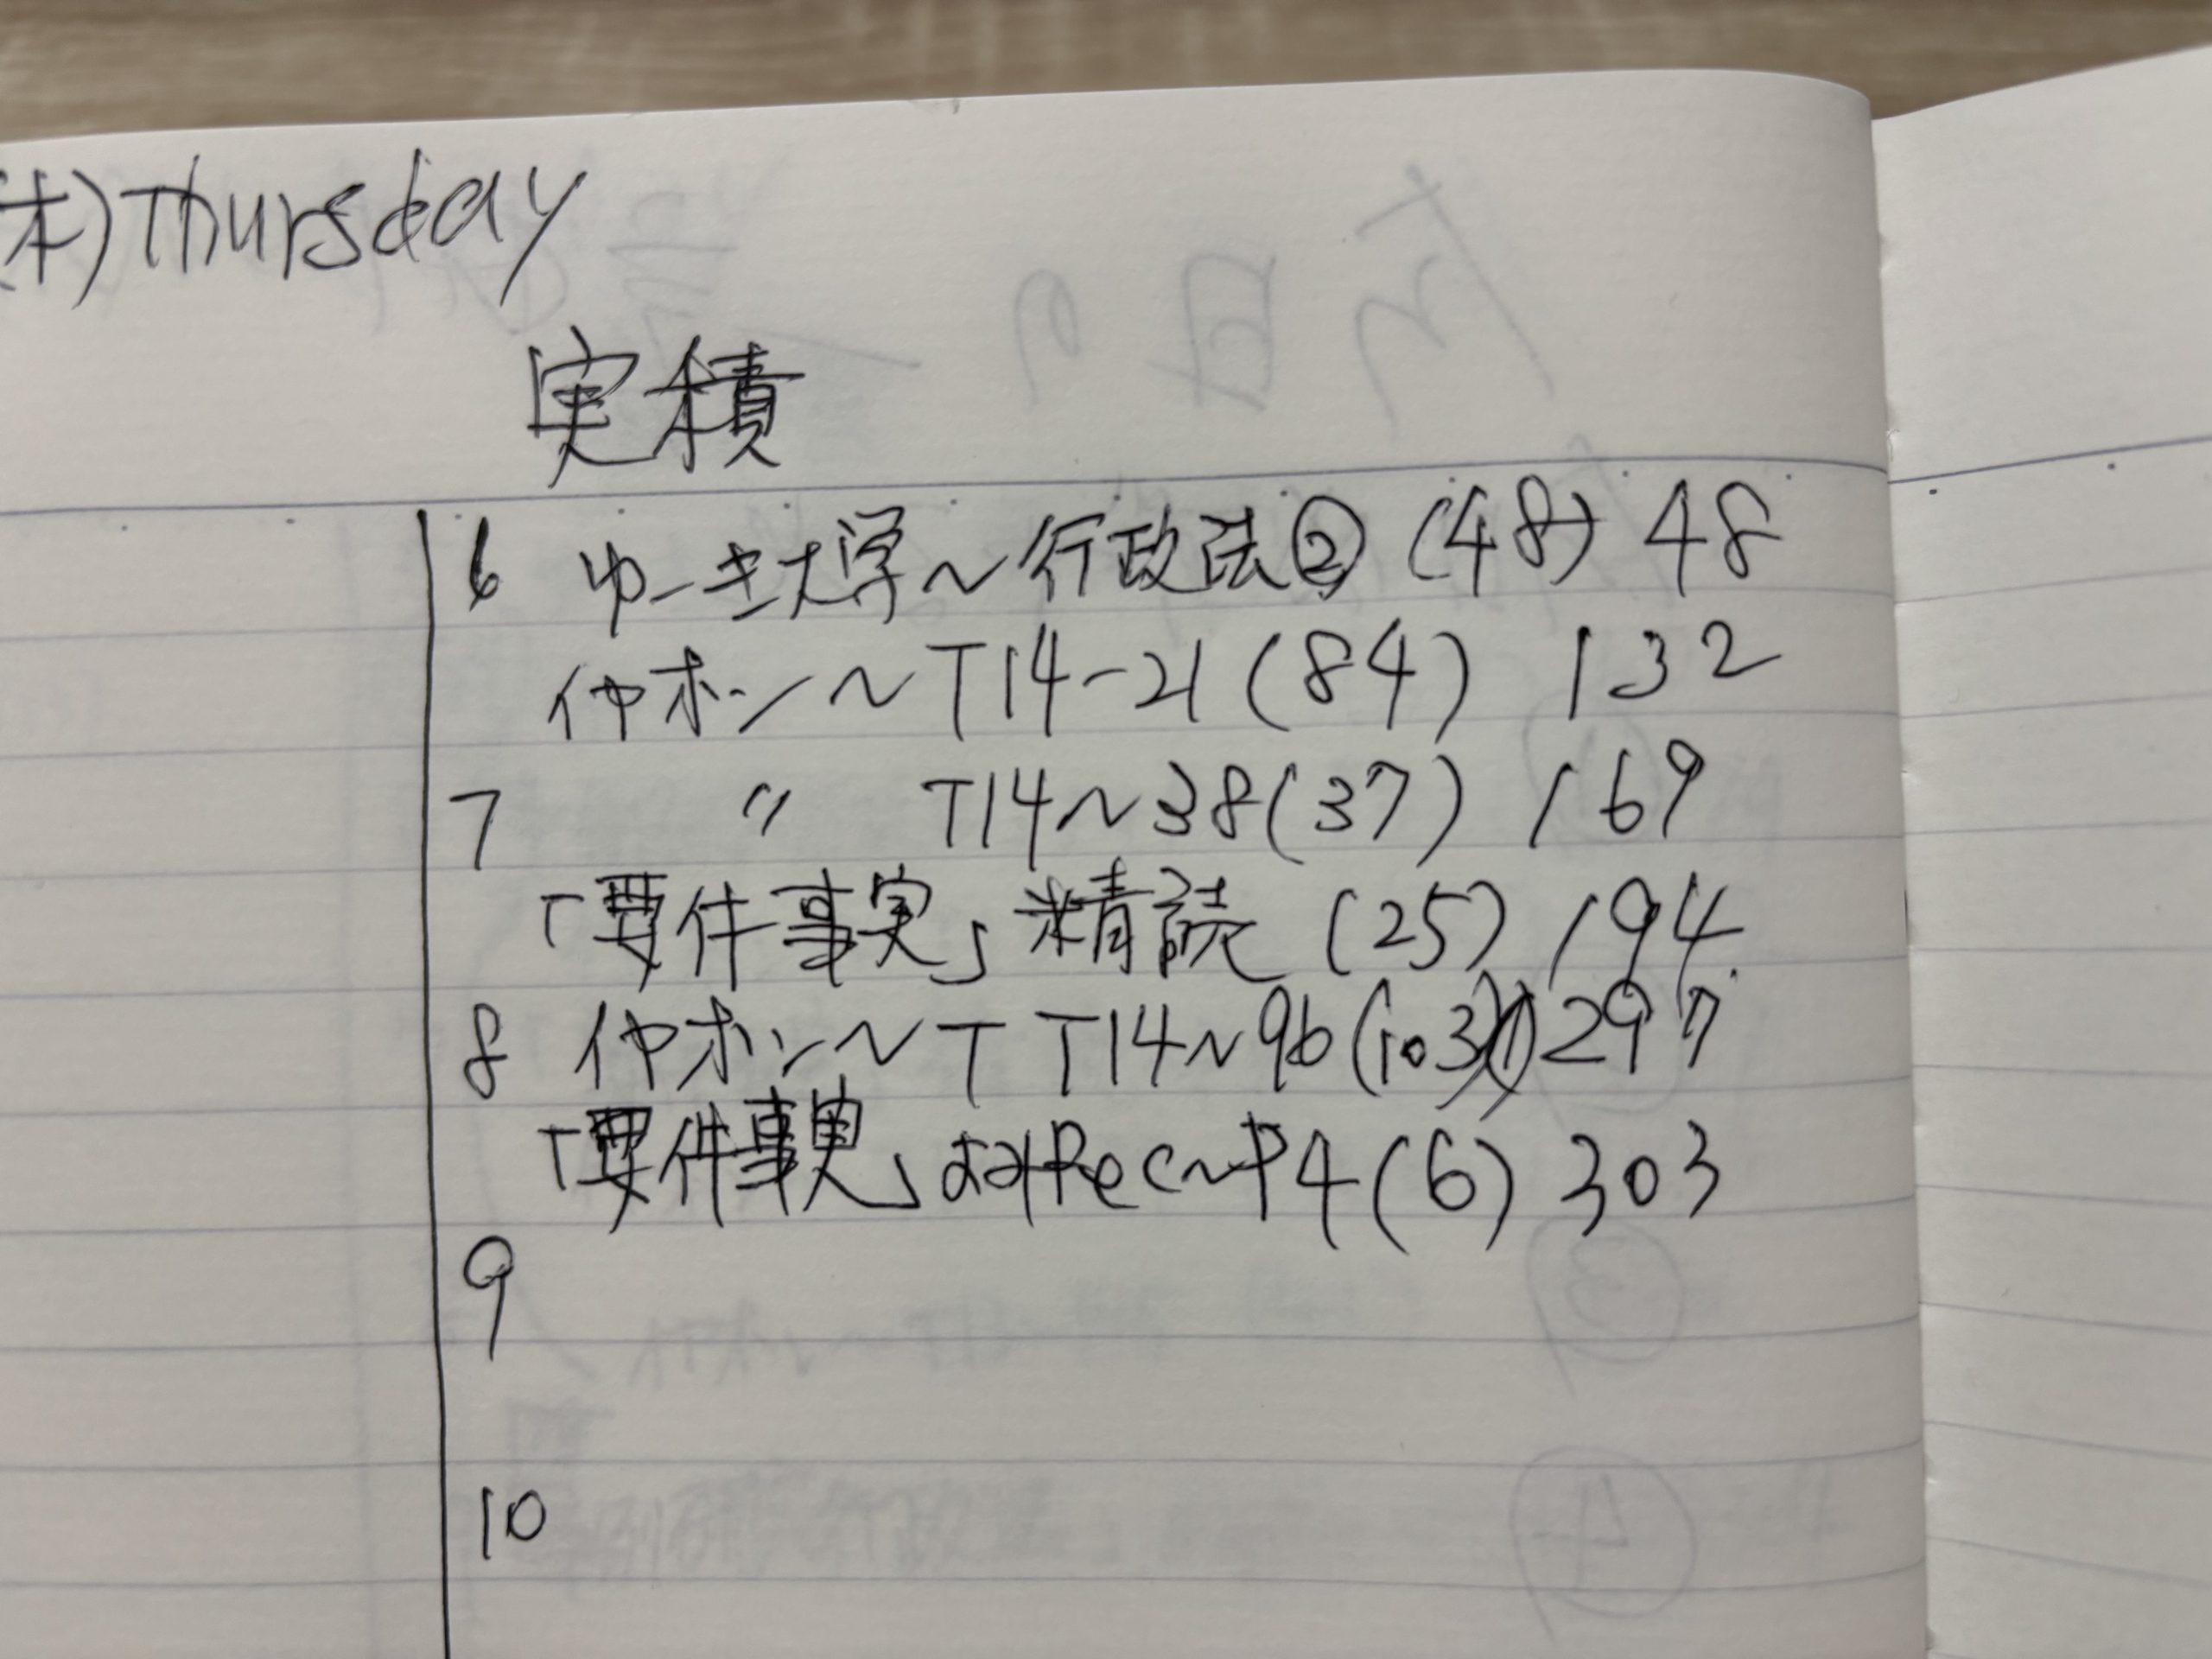 (木)Thursday
実積
6 ゆーき大学～行政法② (48) 48
仲ホン～T14-21(84) 132
7 〃 T14～38(37) 169
「要件事実」精読 (25) 194
8 仲ホン～T T14～96(103) 297
「要件事実」 Rec～P4(6) 303
9
10